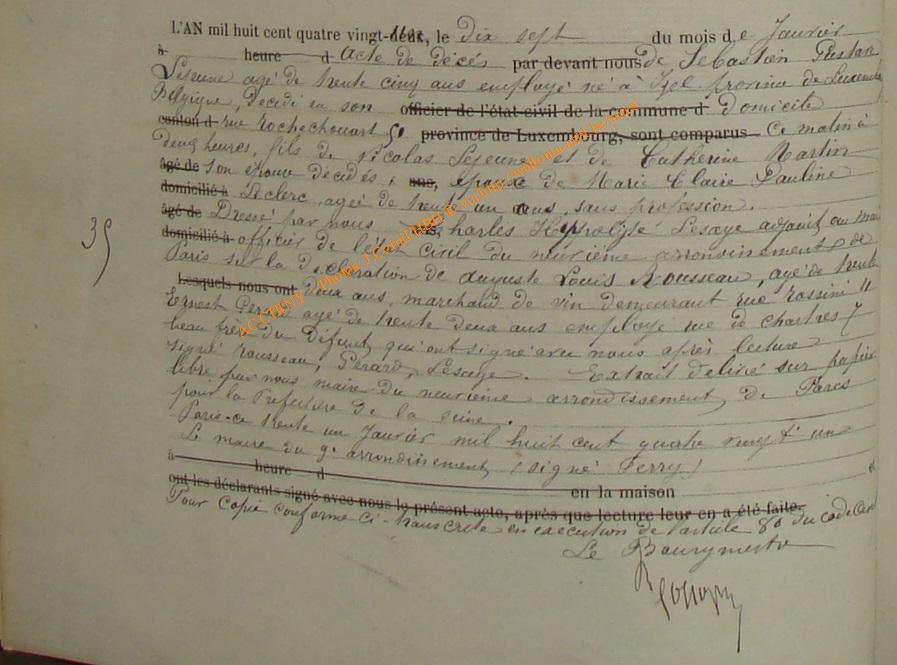 L'AN mil huit cent quatre vingt-deux, le dix sept du mois de Janvier
à heure d Acte de décès par devant nous de Sébastien Gustave
Lejeune agé de trente cinq ans employé né à Izel province de Luxembg
Belgique, Décédé en son officier de l'état-civil de la commune d domicile
canton d rue Rochechouart 50 province de Luxembourg, sont comparus Ce matin à
deux heures, fils de Nicolas Lejeune et de Catherine Martin
âgé de son épouse décédés, ans, époux de Marie Claire Pauline
domicilié à Leclerc, agée de trente un ans, sans profession.
âgé de Dressé par nous ans, Charles Hippolyte Lesage adjoint au maire
domicilié à officier de l'état Civil du neuvième arrondissement de
Paris sur la déclaration de Auguste Louis Rousseau, agé de trente
Lesquels nous ont deux ans, marchand de vin demeurant rue Rossini 11
Ernest Gérard agé de trente deux ans employé rue de chartres 7
beau frère du Défunt, qui ont signé avec nous après lecture
signé Rousseau, Gérard, Lesage. Extrait délivré sur papier
libre par nous maire du neuvième arrondissement, de Paris
pour la Préfecture de la Seine.
Paris ce trente un Janvier mil huit cent quatre vingt un
Le maire du 9e arrondissement, (signé Ferry)
à heure d en la maison et
ont les déclarants signé avec nous le présent acte, après que lecture leur en a été faite.
Pour copie conforme ci-transcrite en exécution de l'article 80 du code Civil
Le Bourgmestre
35